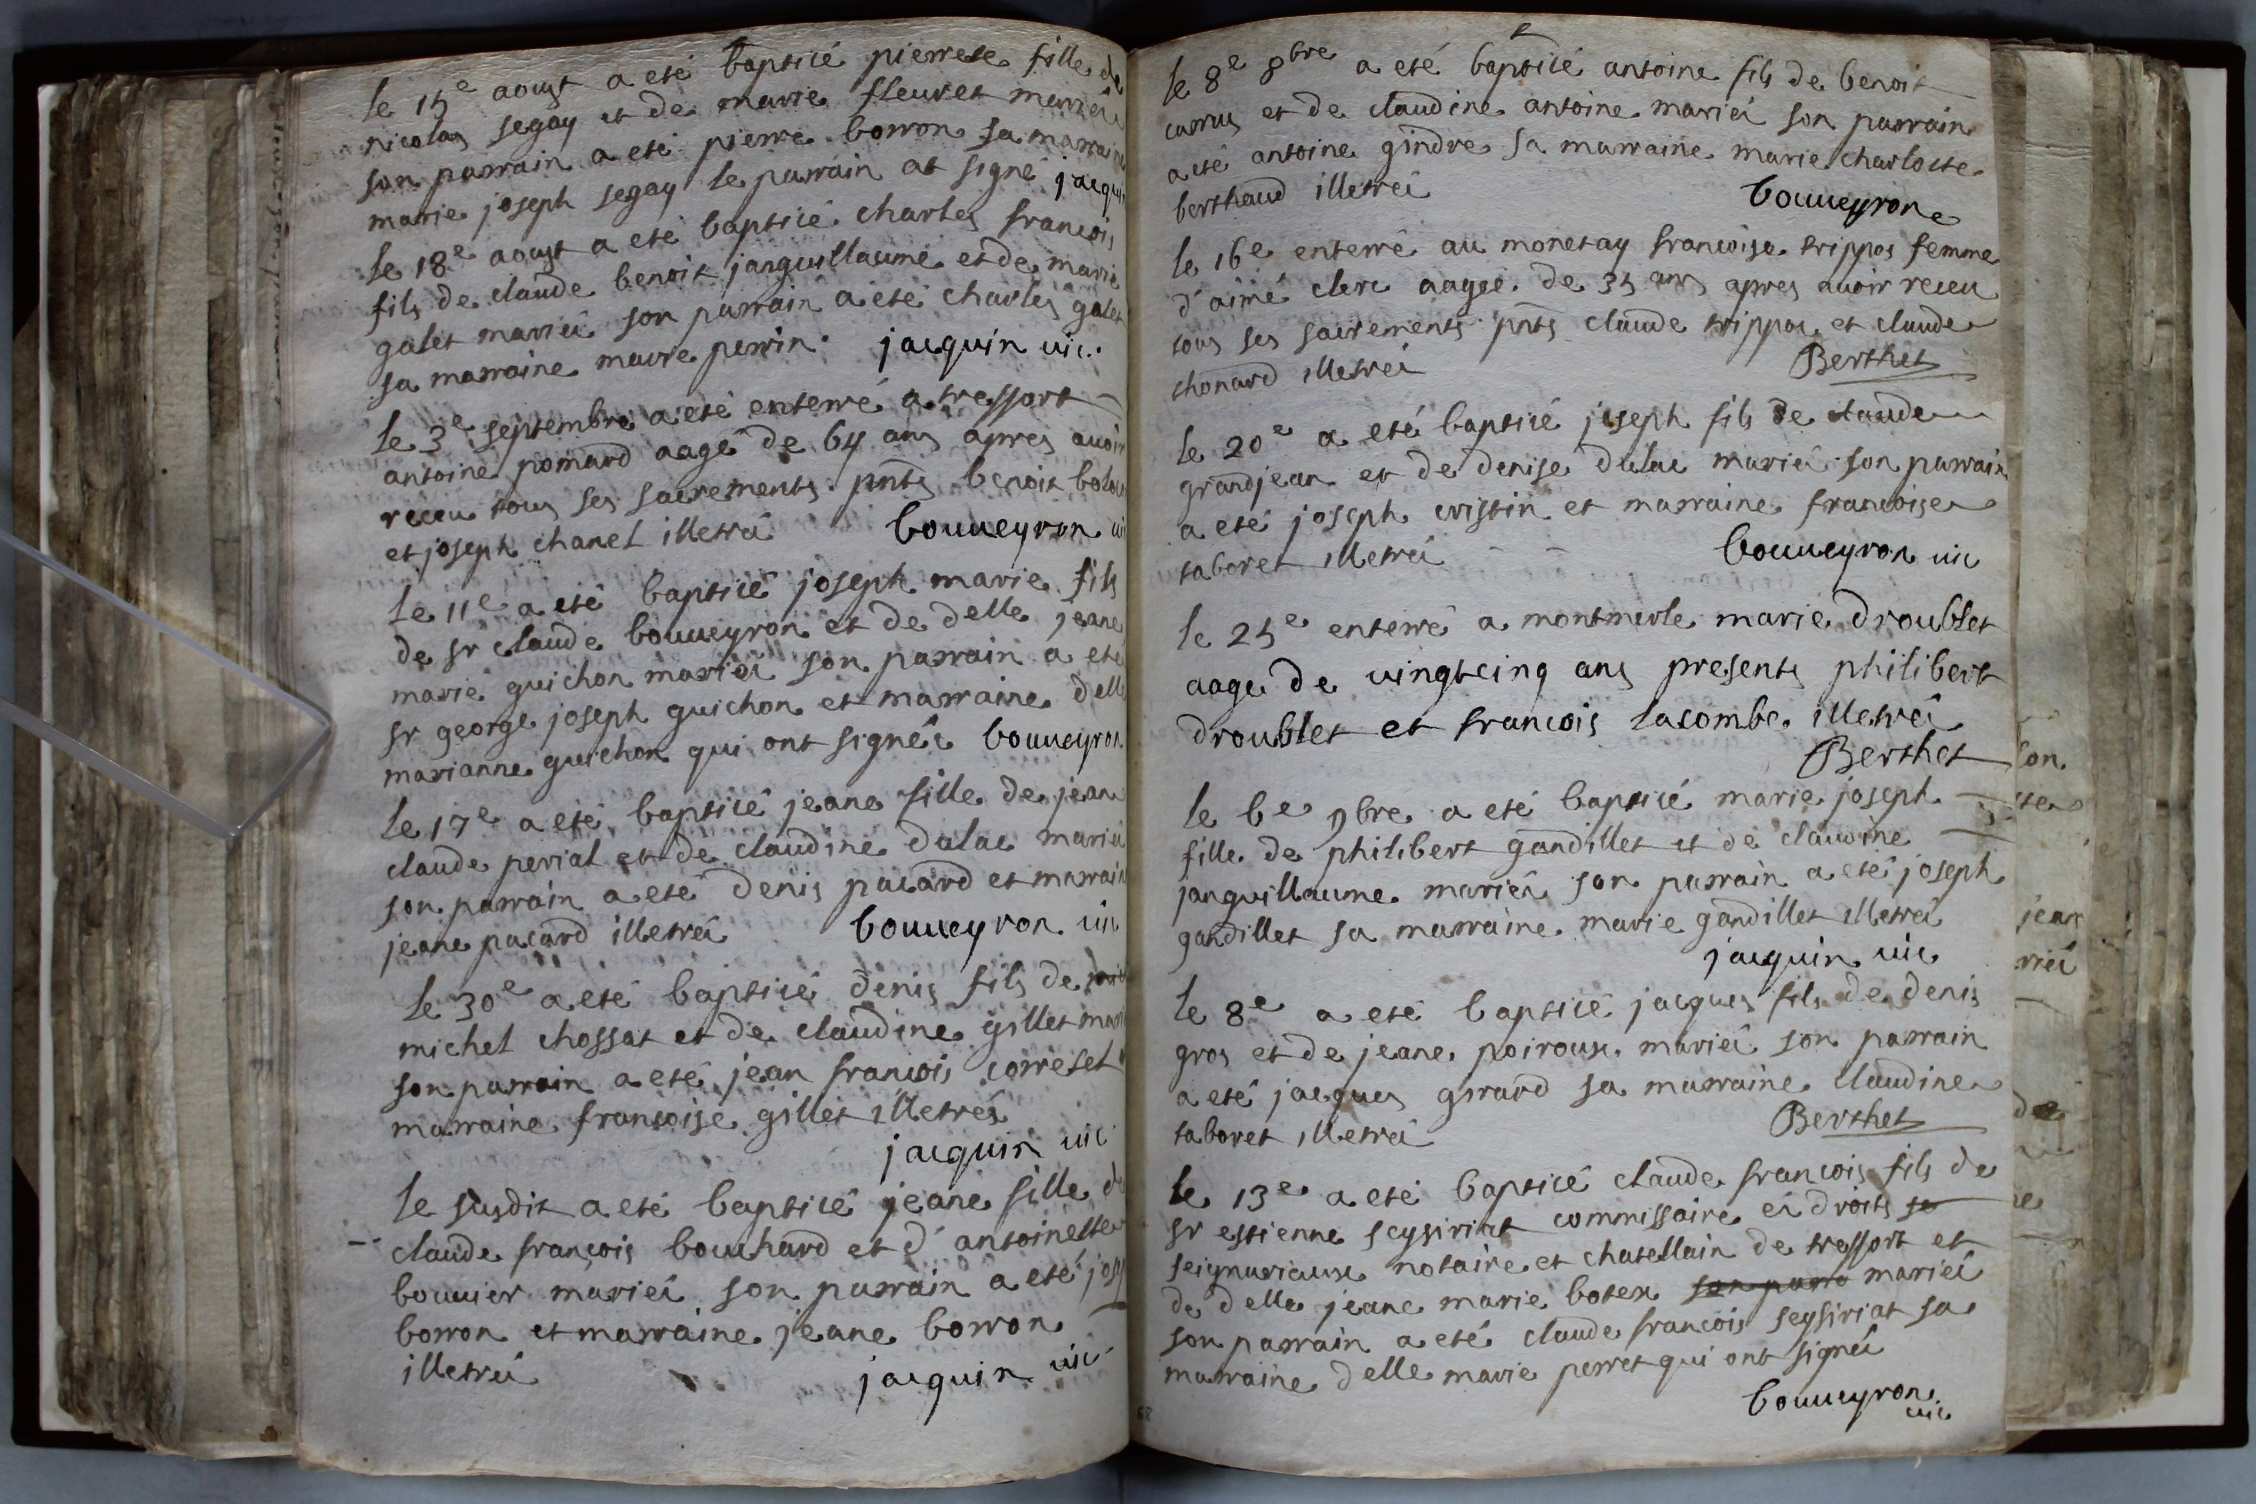 le 15e aoust a eté baptisé pierrete fille de
nicolas segay et de marie fleuret mariés
son parrain a eté pierre borron sa marraine
marie joseph segay le parrain at signé jacquin
le 18e aoust a eté baptisé charles francois
fils de claude benoit janguillaume et de marie
galet mariéz son parrain a eté charles galet
sa marraine marie perrin. jacquin vic.
le 3e septembre a eté enterré a tressort
antoine pomard aagé de 64 ans apres avoir
receu tous ses sacrements pnts benoit
et joseph chanel illetréz bouveyron
le 11e a eté baptisé joseph marie fils
de sr claude bouveyron et de delle jeane
marie guichon mariéz son parrain a eté
sr george joseph guichon et marraine delle
marianne guichon qui ont signéz bouveyron
le 17e a eté baptisé jeane fille de jean
claude perial et de claudine dulac mariéz
son parrain a eté denis pacard et marraine
jeane pacard illetréz bouveyron vic
le 30e a eté baptisé denis fils de
michel chossat et de claudine gillet
son parrain a eté jean francois corretet
marraine francoise gillet illetrés
jacquin vic
le susdit a eté baptisé jeane fille de
claude françois bouchard et d'antoinette
bouvier mariéz son parrain a eté
borron et marraine jeane borron
illetréz jacquin vic
le 8e 8bre a eté baptisé antoine fils de benoit
camus et de claudine antoine mariéz son parrain
a eté antoine gindre sa marraine marie charlotte
berthaud illetréz bouveyron
le 16e enterré au monetay francoise trippoz femme
d'aimé clerc aagée de 35 ans apres avoir receu
tous ses sacrements pnts claude trippoz et claude
chonard illetréz Berthet
le 20e a eté baptisé joseph fils de claude
grandjean et de denise dulac mariéz son parrain
a eté joseph cristin et marraine francoise
taboret illetréz bouveyron vic
le 25e enterré a montmerle marie droublet
aagé de vingtcinq ans presents philibert
droublet et francois lacombe illetréz
Berthet
le 6e 9bre a eté baptisé marie joseph
fille de philibert gandillet et de claudine
janguillaume mariéz son parrain a eté joseph
gandillet sa marraine marie gandillet illetréz
jacquin vic
le 8e a eté baptisé jacques fils de denis
gros et de jeane poiroux mariéz son parrain
a eté jacques girard sa marraine claudine
taboret illetréz Berthet
le 13e a eté baptisé claude francois fils de
sr estienne seysiriat commissaire éz droits se
seignuriaux notaire et chatellain de tressort et
de delle jeane marie botex son parra mariéz
son parrain a eté claude francois seysiriat sa
marraine delle marie perret qui ont signéz
bouveyron
vic